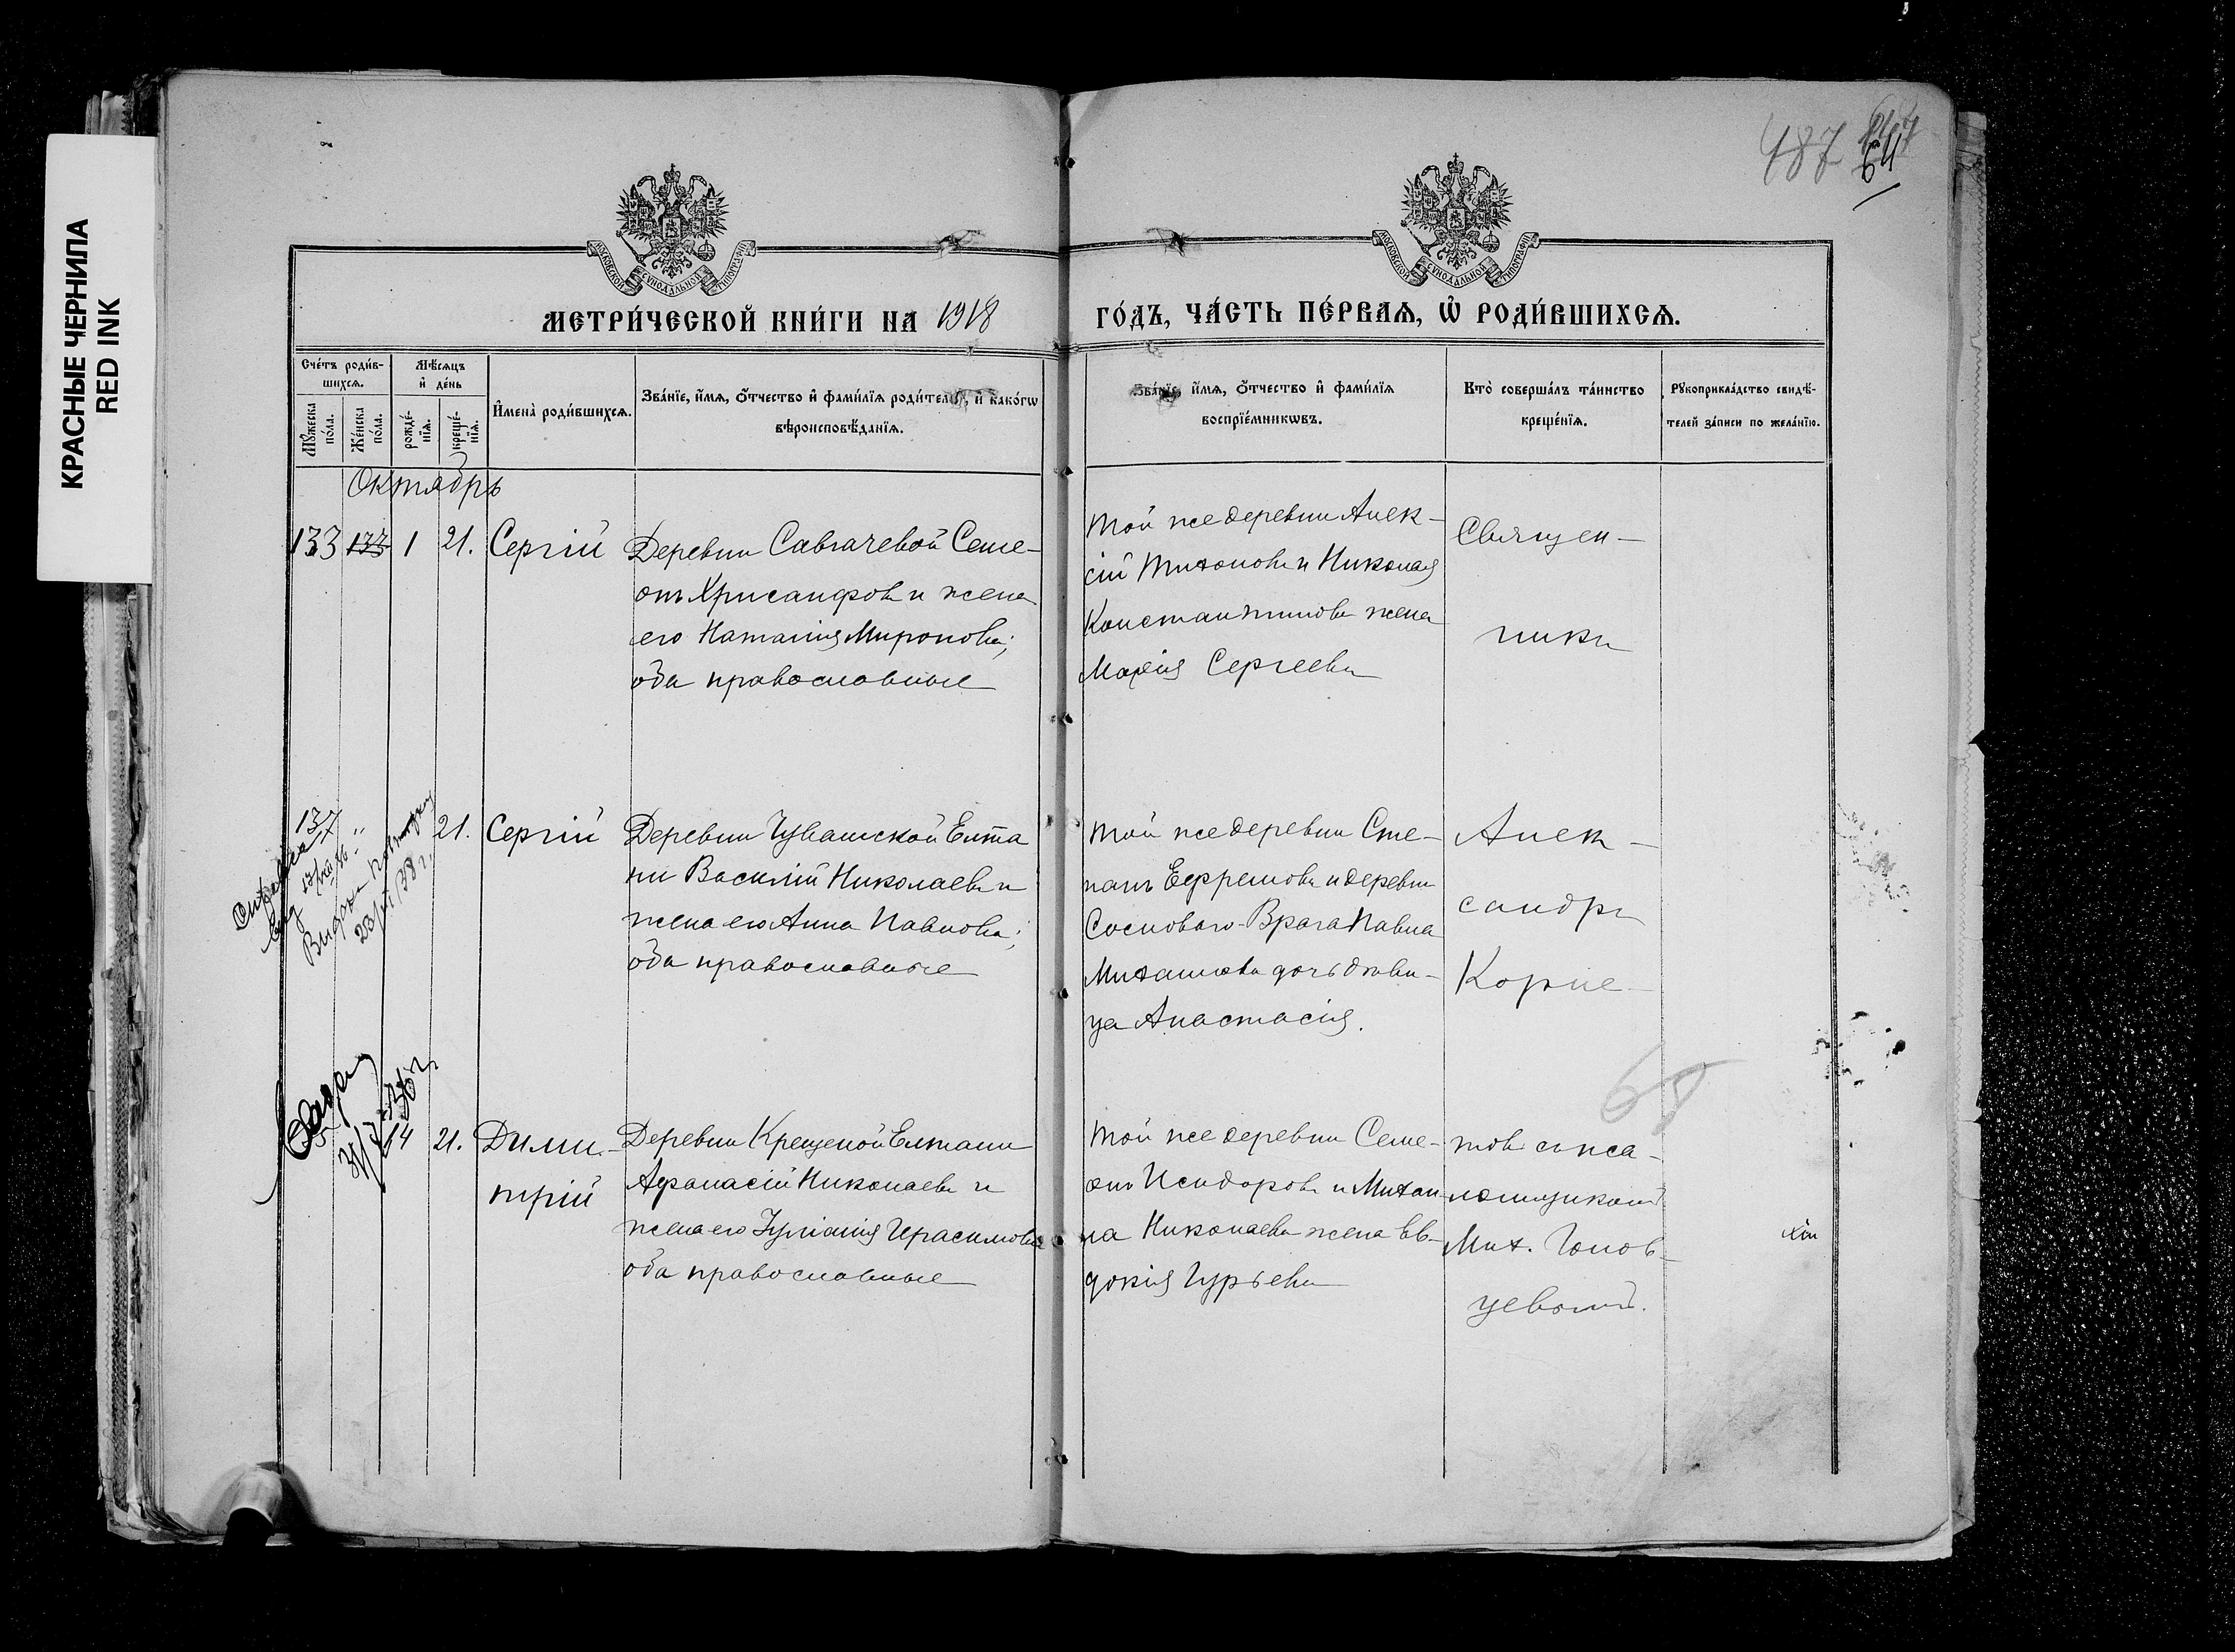 КРАСНЫЕ ЧЕРНИЛА
RED INK
487
МОСКОВСКОЙ СУНОДАЛЬНОЙ ТИПОГРАФІИ
МОСКОВСКОЙ СУНОДАЛЬНОЙ ТИПОГРАФІИ
МЕТРИ́ЧЕСКОЙ КНИ́ГИ НА 1918
ГО́ДЪ, ЧА́СТЬ ПЕ́РВАѦ, Ѡ РОДИ́ВШИХСѦ.
Сче́тъ роди́в-
шихсѧ.
Мꙋ́жеска
по́ла.
Же́нска
по́ла.
Мѣ́сѧцъ
и̂ де́нь
рожде́-
нїѧ.
креще́-
нїѧ.
И̂мена̀ роди́вшихсѧ.
Зва́нїе, и̂́мѧ, ѻ̂́тчество и̂ фами́лїѧ роди́телей, и̂ како́гѡ
вѣроисповѣ́данїѧ.
Зва́нїе, и̂́мѧ, ѻ̂́тчество и̂ фами́лїѧ
воспрїе́мникѡвъ.
Кто̀ соверша́лъ та́инство
креще́нїѧ.
Рꙋкоприкла́дство свидѣ́-
телей за́писи по жела́нїю.
Октябрь
133 133 1 21. Сергій
Деревни Савгачевой Семе-
онъ Хрисанфовъ и жена
его Наталія Миронова;
оба православные
Той же деревни Алек-
сій Тихоновъ и Николая
Константинова жена
Марія Сергеева
Священ-
никъ
137
21. Сергій
23/III 38 г.
Деревни Чувашской Елта
ни Василій Николаевъ и
жена его Анна Павлова;
оба православные
Той же деревни Сте-
панъ Ефремовъ и деревни
Сосноваго-Врага Павла
Михайлова дочь дѣви-
ца Анастасія.
Алек-
сандръ
Корне-
14 21. Дими-
трій
Деревни Крещеной Елтани
Афанасій Николаевъ и
жена его Іуліанія Герасимова
оба православные
Той же деревни Семе-
онъ Исидоровъ и Михаи-
ла Николаева жена Ев-
докія Гурьева
товъ съ пса-
ломщикомъ
Мих. Голов-
цевомъ.